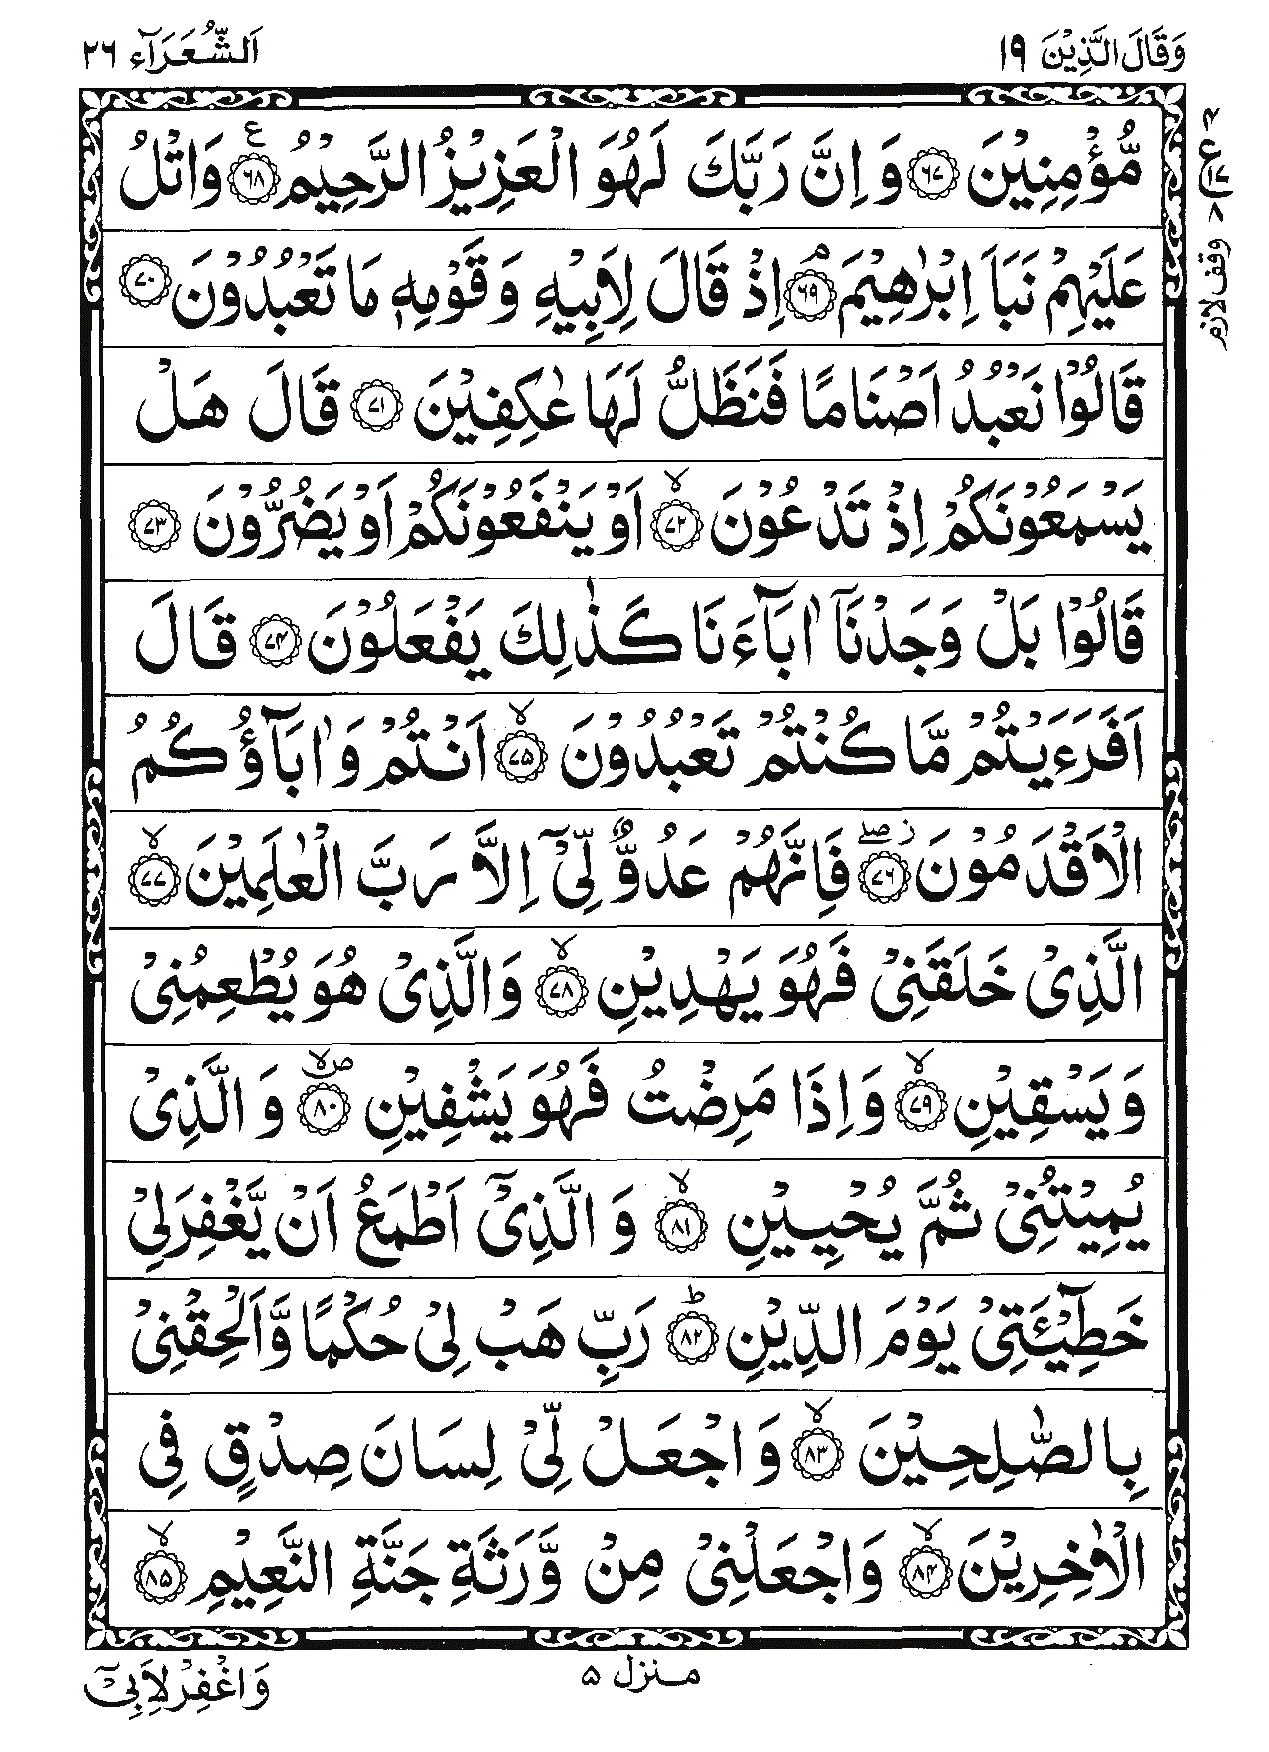 وَقَالَ الَّذِيْنَ ١٩
اَلشُّعَرَآء ٢٦
مُّؤْمِنِيْنَ ﴿٦٧﴾ وَ اِنَّ رَبَّكَ لَهُوَ الْعَزِيْزُ الرَّحِيْمُ ﴿٦٨﴾ ع وَاتْلُ
عَلَيْهِمْ نَبَاَ اِبْرٰهِيْمَ ﴿٦٩﴾ۘ اِذْ قَالَ لِاَبِيْهِ وَ قَوْمِهٖ مَا تَعْبُدُوْنَ ﴿٧٠﴾
قَالُوْا نَعْبُدُ اَصْنَامًا فَنَظَلُّ لَهَا عٰكِفِيْنَ ﴿٧١﴾ قَالَ هَلْ
يَسْمَعُوْنَكُمْ اِذْ تَدْعُوْنَ ﴿٧٢﴾ۙ اَوْ يَنْفَعُوْنَكُمْ اَوْ يَضُرُّوْنَ ﴿٧٣﴾
قَالُوْا بَلْ وَجَدْنَاۤ اٰبَآءَنَا كَذٰلِكَ يَفْعَلُوْنَ ﴿٧٤﴾ قَالَ
اَفَرَءَيْتُمْ مَّا كُنْتُمْ تَعْبُدُوْنَ ﴿٧٥﴾ۙ اَنْتُمْ وَ اٰبَآؤُكُمُ
الْاَقْدَمُوْنَ ﴿٧٦﴾ زۖ فَاِنَّهُمْ عَدُوٌّ لِّيْۤ اِلَّا رَبَّ الْعٰلَمِيْنَ ﴿٧٧﴾ۙ
الَّذِيْ خَلَقَنِيْ فَهُوَ يَهْدِيْنِ ﴿٧٨﴾ۙ وَالَّذِيْ هُوَ يُطْعِمُنِيْ
وَ يَسْقِيْنِ ﴿٧٩﴾ۙ وَ اِذَا مَرِضْتُ فَهُوَ يَشْفِيْنِ ﴿٨٠﴾ص ۙ وَ الَّذِيْ
يُمِيْتُنِيْ ثُمَّ يُحْيِيْنِ ﴿٨١﴾ۙ وَ الَّذِيْۤ اَطْمَعُ اَنْ يَّغْفِرَ لِيْ
خَطِيْٓئَتِيْ يَوْمَ الدِّيْنِ ﴿٨٢﴾ؕ رَبِّ هَبْ لِيْ حُكْمًا وَّ اَلْحِقْنِيْ
بِالصّٰلِحِيْنَ ﴿٨٣﴾ۙ وَ اجْعَلْ لِّيْ لِسَانَ صِدْقٍ فِي
الْاٰخِرِيْنَ ﴿٨٤﴾ۙ وَاجْعَلْنِيْ مِنْ وَّرَثَةِ جَنَّةِ النَّعِيْمِ ﴿٨٥﴾ۙ
٤
ع
١٧
٨
وقف لازم
منزل ٥
وَ اغْفِرْ لِاَبِيْۤ